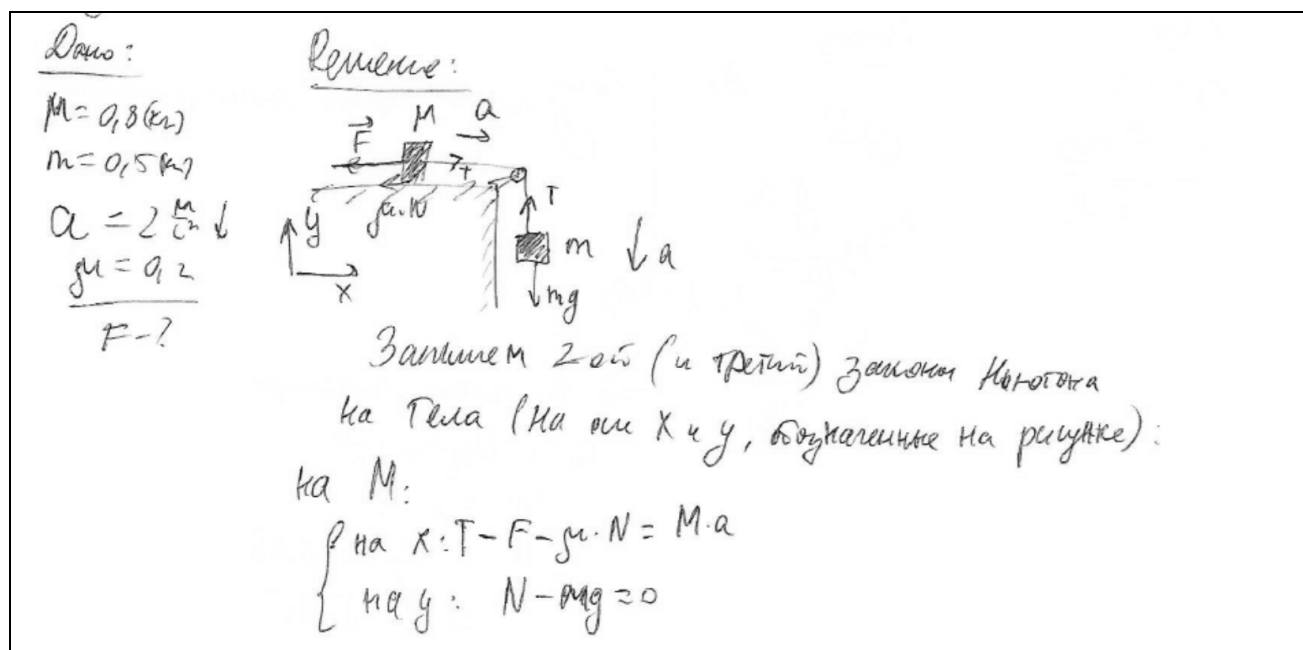 Дано:
M = 0,8 (кг)
m = 0,5 (кг)
a = 2 м/с² ↓
μ = 0,2
F - ?
Решение:
M
a
F
T
μ·N
y
x
T
m
a
mg
Запишем 2-ой (и третий) законы Ньютона
на тела (на оси x и y, обозначенные на рисунке):
на M:
на x: T - F - μ·N = M·a
на y: N - Mg = 0